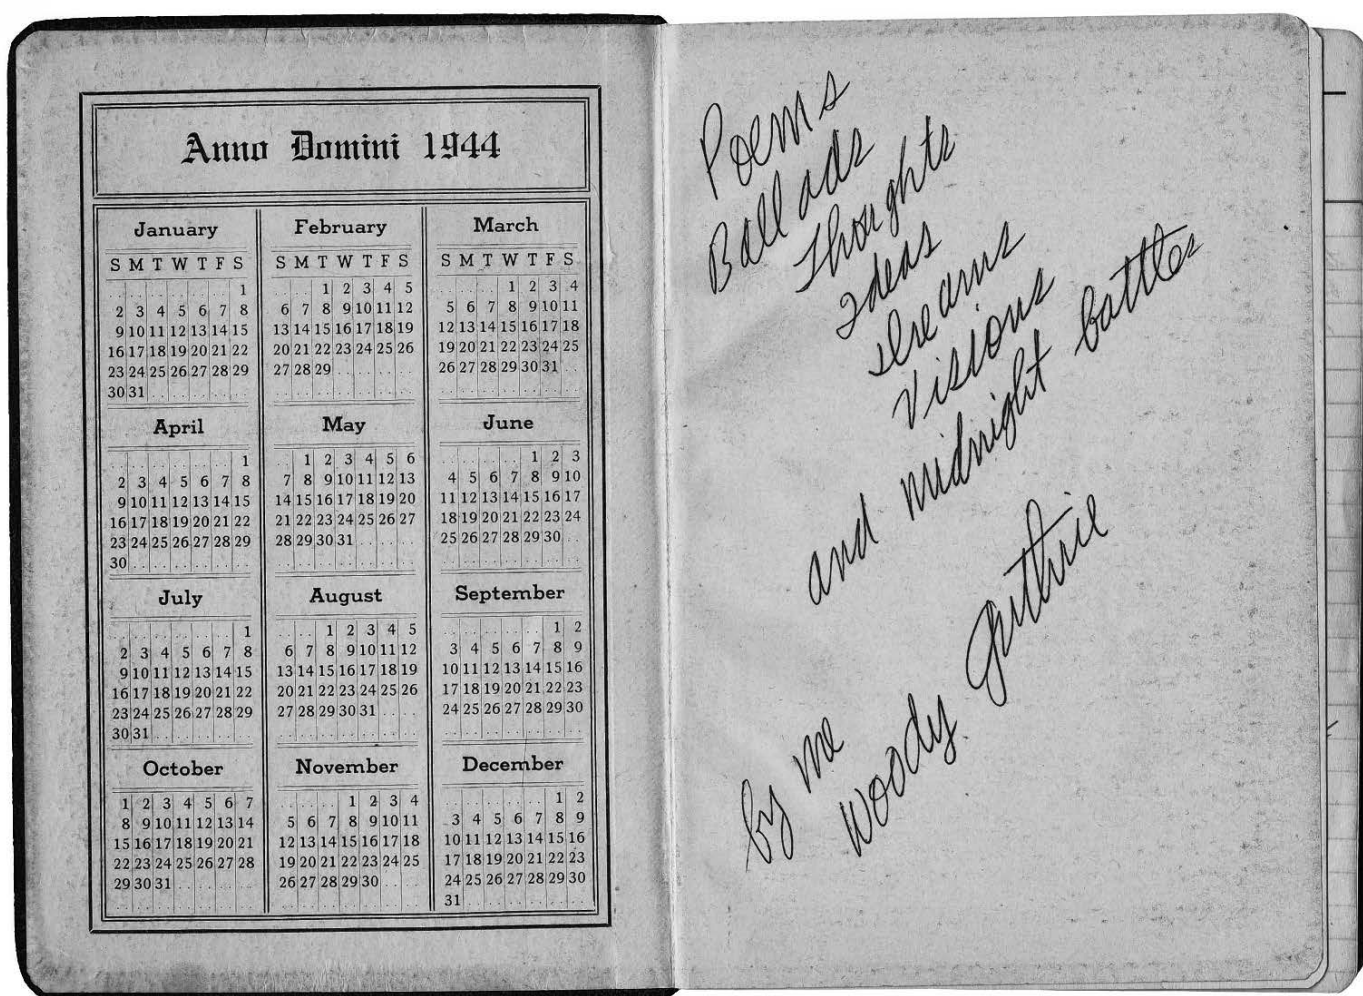 Anno Domini 1944
January
S M T W T F S
1
2 3 4 5 6 7 8
9 10 11 12 13 14 15
16 17 18 19 20 21 22
23 24 25 26 27 28 29
30 31
February
S M T W T F S
1 2 3 4 5
6 7 8 9 10 11 12
13 14 15 16 17 18 19
20 21 22 23 24 25 26
27 28 29
March
S M T W T F S
1 2 3 4
5 6 7 8 9 10 11
12 13 14 15 16 17 18
19 20 21 22 23 24 25
26 27 28 29 30 31
April
1
2 3 4 5 6 7 8
9 10 11 12 13 14 15
16 17 18 19 20 21 22
23 24 25 26 27 28 29
30
May
1 2 3 4 5 6
7 8 9 10 11 12 13
14 15 16 17 18 19 20
21 22 23 24 25 26 27
28 29 30 31
June
1 2 3
4 5 6 7 8 9 10
11 12 13 14 15 16 17
18 19 20 21 22 23 24
25 26 27 28 29 30
July
1
2 3 4 5 6 7 8
9 10 11 12 13 14 15
16 17 18 19 20 21 22
23 24 25 26 27 28 29
30 31
August
1 2 3 4 5
6 7 8 9 10 11 12
13 14 15 16 17 18 19
20 21 22 23 24 25 26
27 28 29 30 31
September
1 2
3 4 5 6 7 8 9
10 11 12 13 14 15 16
17 18 19 20 21 22 23
24 25 26 27 28 29 30
October
1 2 3 4 5 6 7
8 9 10 11 12 13 14
15 16 17 18 19 20 21
22 23 24 25 26 27 28
29 30 31
November
1 2 3 4
5 6 7 8 9 10 11
12 13 14 15 16 17 18
19 20 21 22 23 24 25
26 27 28 29 30
December
1 2
3 4 5 6 7 8 9
10 11 12 13 14 15 16
17 18 19 20 21 22 23
24 25 26 27 28 29 30
31
Poems
Ballads
Thoughts
Ideas
Dreams
Visions
and midnight battles
by me
Woody Guthrie